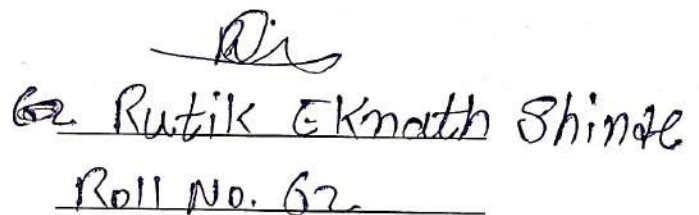 Rutik Eknath Shinde
Roll No. 62